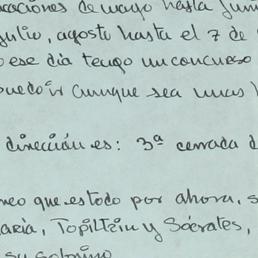 vacaciones de mayo hasta Juni
julio, agosto hasta el 7 de
ese dia tengo un concurso
puedo ir aunque sea unas
dirección es: 3ª cerrada d
creo que es todo por ahora, s
María, Topiltzin y Sócrates,
su sobrino